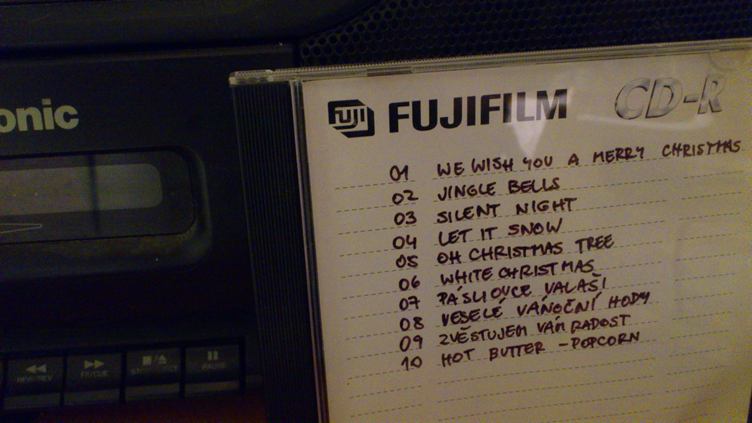 onic
FUJI FUJIFILM CD-R
01 WE WISH YOU A MERRY CHRISTMAS
02 JINGLE BELLS
03 SILENT NIGHT
04 LET IT SNOW
05 OH CHRISTMAS TREE
06 WHITE CHRISTMAS
07 PÁSLI OVCE VALAŠI
08 VESELÉ VÁNOČNÍ HODY
09 ZVĚSTUJEM VÁM RADOST
10 HOT BUTTER - POPCORN
REW/REV FF/CUE PAUSE